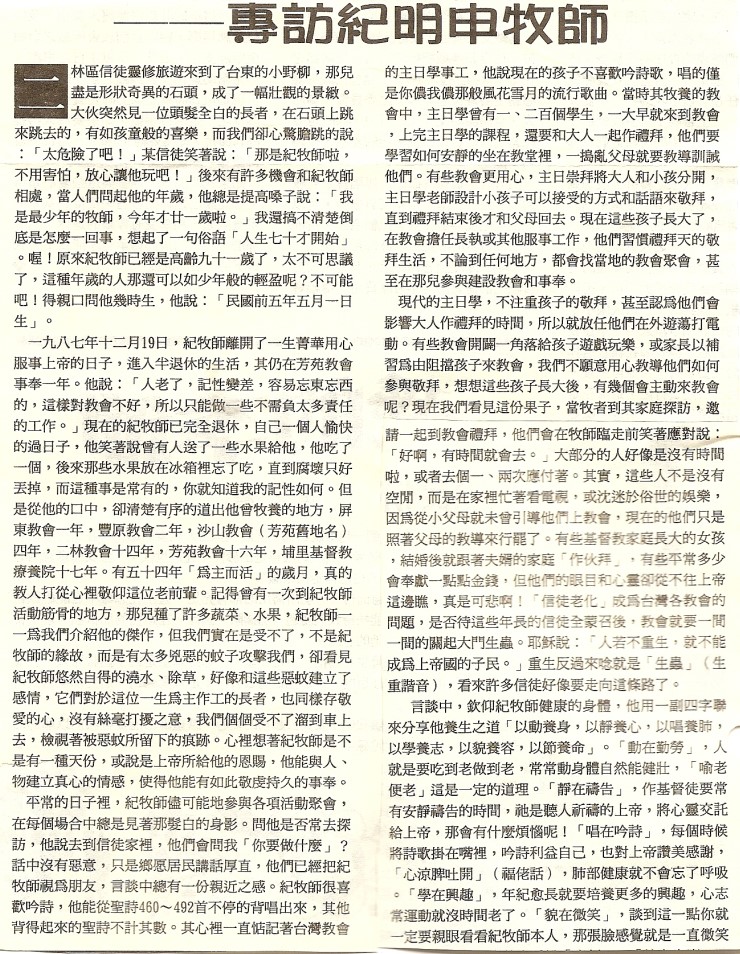 ———專訪紀明申牧師
二林區信徒靈修旅遊來到了台東的小野柳，那兒
盡是形狀奇異的石頭，成了一幅壯觀的景緻。
大伙突然見一位頭髮全白的長者，在石頭上跳
來跳去的，有如孩童般的喜樂，而我們卻心驚膽跳的說
：「太危險了吧！」某信徒笑著說：「那是紀牧師啦，
不用害怕，放心讓他玩吧！」後來有許多機會和紀牧師
相處，當人們問起他的年歲，他總是提高嗓子說：「我
是最少年的牧師，今年才廿一歲啦。」我還搞不清楚倒
底是怎麼一回事，想起了一句俗語「人生七十才開始」
。喔！原來紀牧師已經是高齡九十一歲了，太不可思議
了，這種年歲的人那還可以如少年般的輕盈呢？不可能
吧！得親口問他幾時生，他說：「民國前五年五月一日
生」。
一九八七年十二月19日，紀牧師離開了一生菁華用心
服事上帝的日子，進入半退休的生活，其仍在芳苑教會
事奉一年。他說：「人老了，記性變差，容易忘東忘西
的，這樣對教會不好，所以只能做一些不需負太多責任
的工作。」現在的紀牧師已完全退休，自己一個人愉快
的過日子，他笑著說曾有人送了一些水果給他，他吃了
一個，後來那些水果放在冰箱裡忘了吃，直到腐壞只好
丟掉，而這種事是常有的，你就知道我的記性如何。但
是從他的口中，卻清楚有序的道出他曾牧養的地方，屏
東教會一年，豐原教會二年，沙山教會（芳苑舊地名）
四年，二林教會十四年，芳苑教會十六年，埔里基督教
療養院十七年。有五十四年「為主而活」的歲月，真的
教人打從心裡敬仰這位老前輩。記得曾有一次到紀牧師
活動筋骨的地方，那兒種了許多蔬菜、水果，紀牧師一
一為我們介紹他的傑作，但我們實在是受不了，不是紀
牧師的緣故，而是有太多兇惡的蚊子攻擊我們，卻看見
紀牧師悠然自得的澆水、除草，好像和這些惡蚊建立了
感情，它們對於這位一生為主作工的長者，也同樣存敬
愛的心，沒有絲毫打擾之意，我們個個受不了溜到車上
去，檢視著被惡蚊所留下的痕跡。心裡想著紀牧師是不
是有一種天份，或說是上帝所給他的恩賜，他能與人、
物建立真心的情感，使得他能有如此敬虔持久的事奉。
平常的日子裡，紀牧師儘可能地參與各項活動聚會，
在每個場合中總是見著那髮白的身影。問他是否常去探
訪，他說去到信徒家裡，他們會問我「你要做什麼」？
話中沒有惡意，只是鄉愿居民講話厚直，他們已經把紀
牧師視為朋友，言談中總有一份親近之感。紀牧師很喜
歡吟詩，他能從聖詩460～492首不停的背唱出來，其他
背得起來的聖詩不計其數。其心裡一直惦記著台灣教會
的主日學事工，他說現在的孩子不喜歡吟詩歌，唱的僅
是你儂我儂那般風花雪月的流行歌曲。當時其牧養的教
會中，主日學曾有一、二百個學生，一大早就來到教會
，上完主日學的課程，還要和大人一起作禮拜，他們要
學習如何安靜的坐在教堂裡，一搗亂父母就要教導訓誡
他們。有些教會更用心，主日崇拜將大人和小孩分開，
主日學老師設計小孩子可以接受的方式和話語來敬拜，
直到禮拜結束後才和父母回去。現在這些孩子長大了，
在教會擔任長執或其他服事工作，他們習慣禮拜天的敬
拜生活，不論到任何地方，都會找當地的教會聚會，甚
至在那兒參與建設教會和事奉。
現代的主日學，不注重孩子的敬拜，甚至認為他們會
影響大人作禮拜的時間，所以就放任他們在外遊蕩打電
動。有些教會開闢一角落給孩子遊戲玩樂，或家長以補
習為由阻擋孩子來教會，我們不願意用心教導他們如何
參與敬拜，想想這些孩子長大後，有幾個會主動來教會
呢？現在我們看見這份果子，當牧者到其家庭探訪，邀
請一起到教會禮拜，他們會在牧師臨走前笑著應對說：
「好啊，有時間就會去。」大部分的人好像是沒有時間
啦，或者去個一、兩次應付著。其實，這些人不是沒有
空閒，而是在家裡忙著看電視，或沈迷於俗世的娛樂，
因為從小父母就未曾引導他們上教會，現在的他們只是
照著父母的教導來行罷了。有些基督教家庭長大的女孩
，結婚後就跟著夫婿的家庭「作伙拜」，有些平常多少
會奉獻一點點金錢，但他們的眼目和心靈卻從不往上帝
這邊瞧，真是可悲啊！「信徒老化」成為台灣各教會的
問題，是否待這些年長的信徒全蒙召後，教會就要一間
一間的關起大門生蟲。耶穌說：「人若不重生，就不能
成為上帝國的子民。」重生反過來唸就是「生蟲」（生
重諧音），看來許多信徒好像要走向這條路了。
言談中，欽仰紀牧師健康的身體，他用一副四字聯
來分享他養生之道「以動養身，以靜養心，以唱養肺，
以學養志，以貌養容，以節養命」。「動在勤勞」，人
就是要吃到老做到老，常常動身體自然能健壯，「喻老
便老」這是一定的道理。「靜在禱告」，作基督徒要常
有安靜禱告的時間，祂是聽人祈禱的上帝，將心靈交託
給上帝，那會有什麼煩惱呢！「唱在吟詩」，每個時候
將詩歌掛在嘴裡，吟詩利益自己，也對上帝讚美感謝，
「心涼脾吐開」（福佬話），肺部健康就不會忘了呼吸
。「學在興趣」，年紀愈長就要培養更多的興趣，心志
常運動就沒時間老了。「貌在微笑」，談到這一點你就
一定要親眼看看紀牧師本人，那張臉感覺就是一直微笑